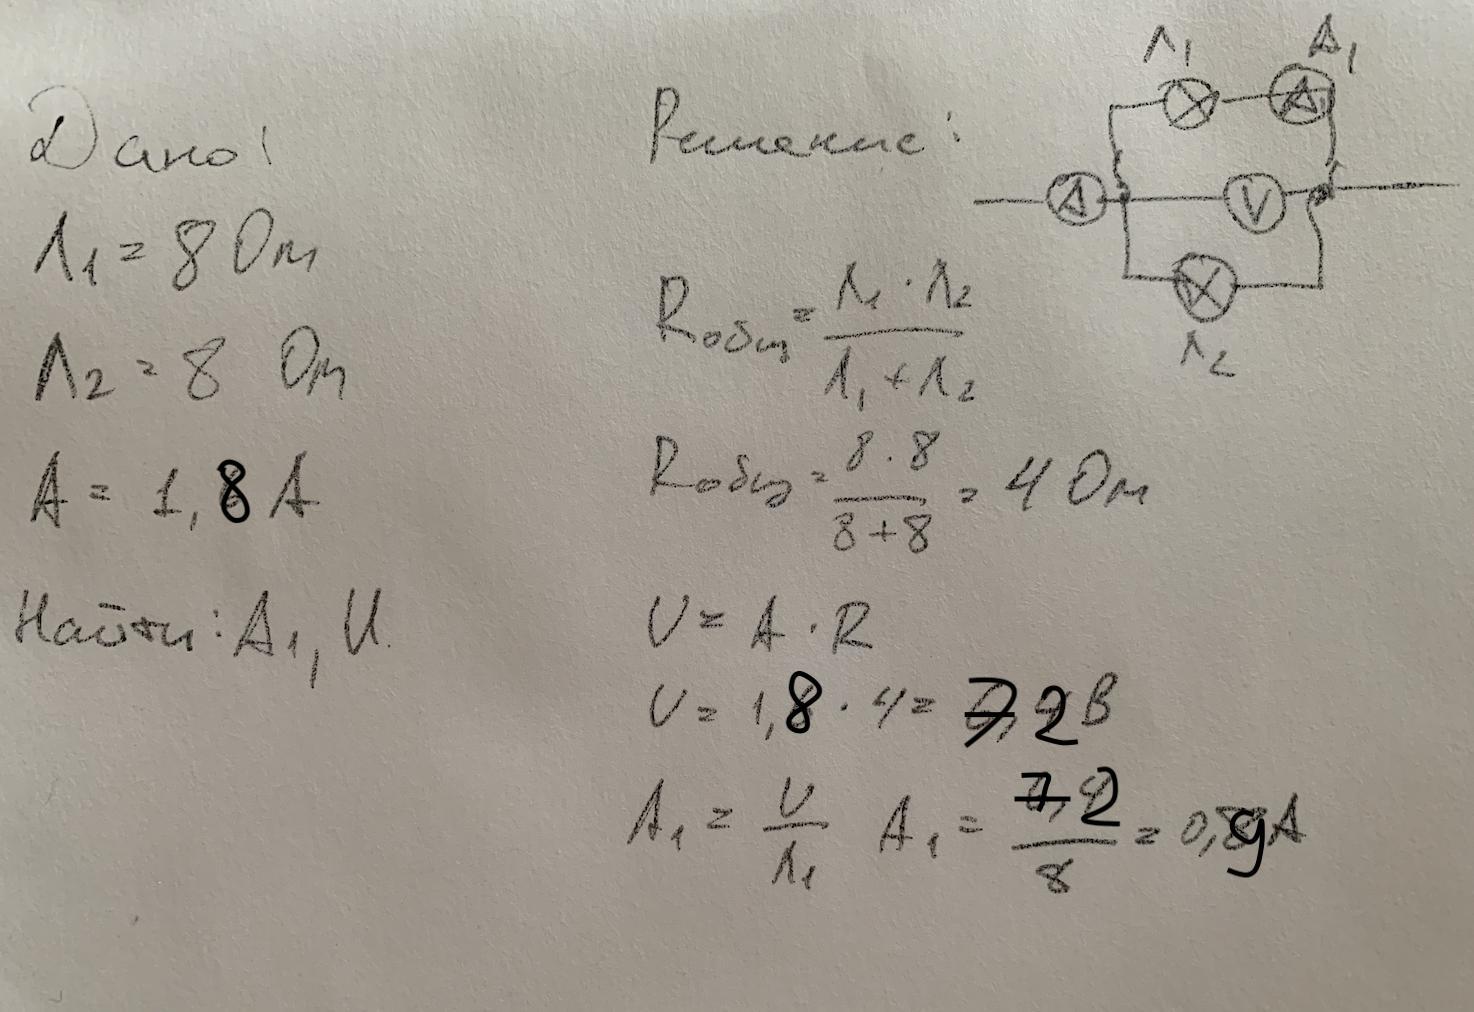 Дано:
Л1 = 8 Ом
Л2 = 8 Ом
A = 1,8 A
Найти: A1, U.
Решение:
Л1 A1
A A1
V
Л2
Rобщ = Л1 · Л2 / Л1 + Л2
Rобщ = 8 · 8 / 8 + 8 = 4 Ом
U = A · R
U = 1,8 · 4 = 7,2 В
A1 = U / Л1 A1 = 7,2 / 8 = 0,9 A